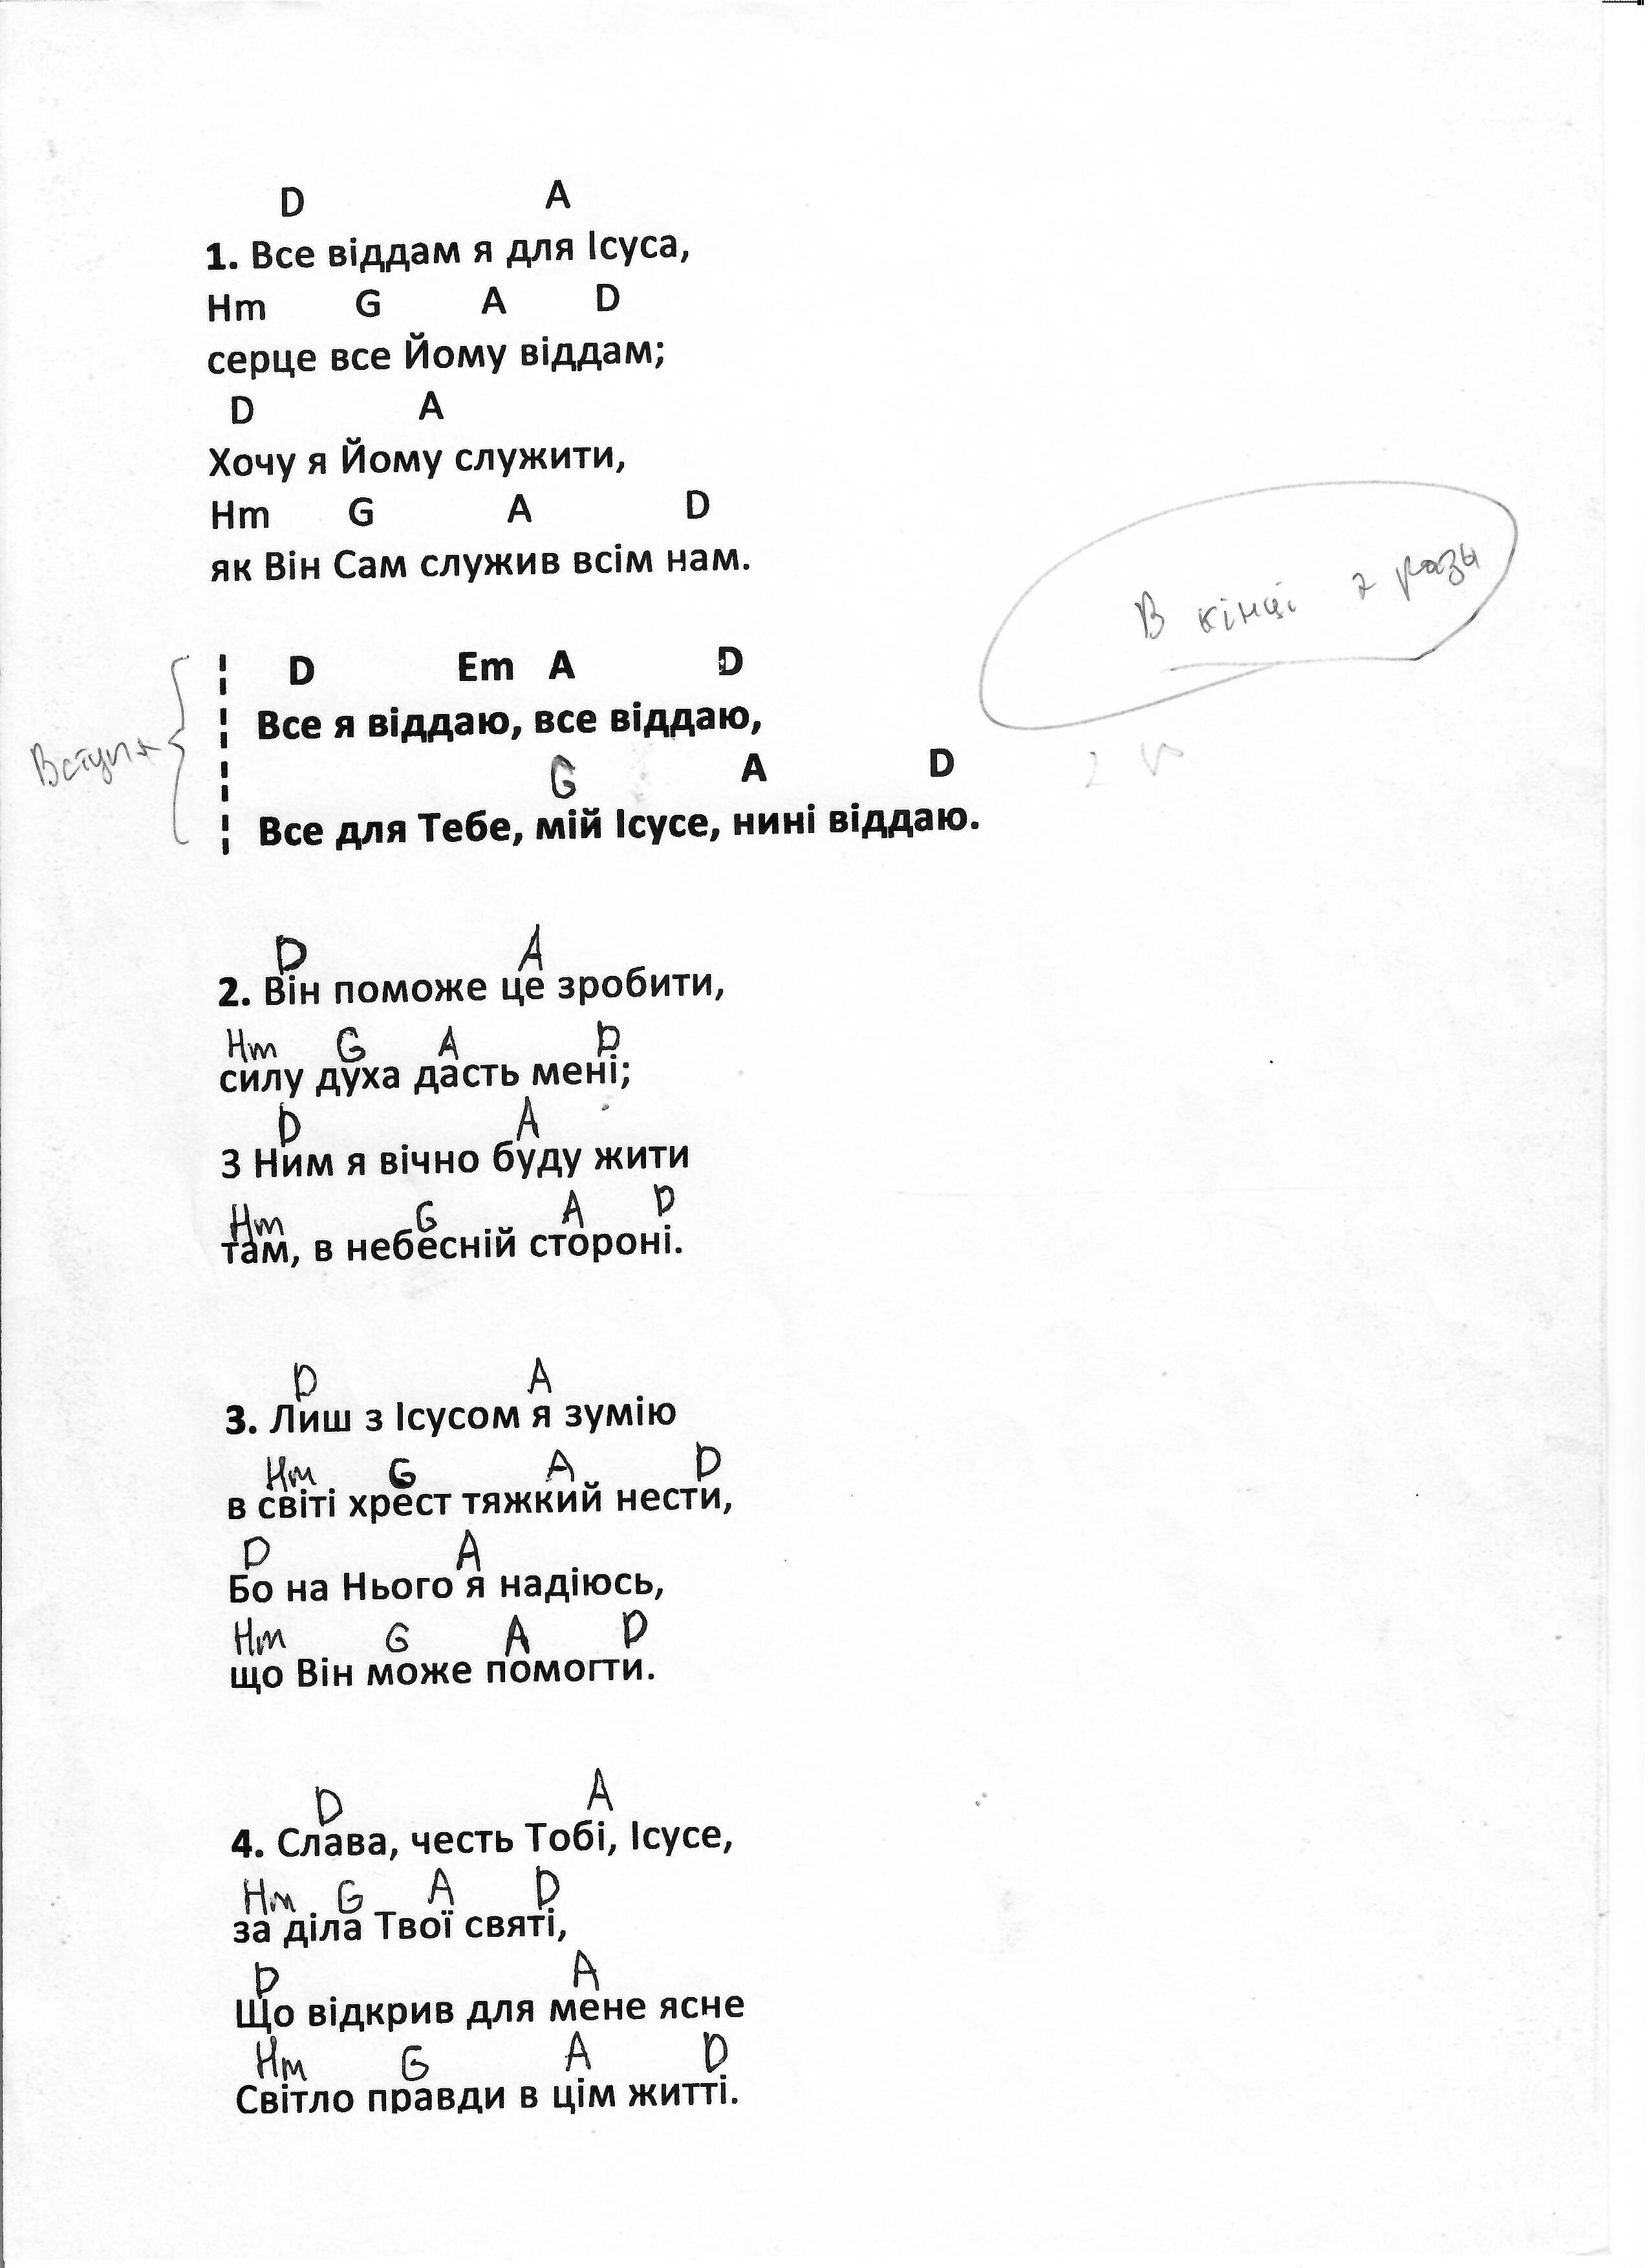 D A
1. Все віддам я для Ісуса,
Hm G A D
серце все Йому віддам;
D A
Хочу я Йому служити,
Hm G A D
як Він Сам служив всім нам.
В кінці 2 разы
D Em A D
Все я віддаю, все віддаю,
G A D
Все для Тебе, мій Ісусе, нині віддаю.
D A
2. Він поможе це зробити,
Hm G A D
силу духа дасть мені;
D A
З Ним я вічно буду жити
Hm G A D
там, в небесній стороні.
D A
3. Лиш з Ісусом я зумію
Hm G A D
в світі хрест тяжкий нести,
D A
Бо на Нього я надіюсь,
Hm G A D
що Він може помогти.
D A
4. Слава, честь Тобі, Ісусе,
Hm G A D
за діла Твої святі,
D A
Що відкрив для мене ясне
Hm G A D
Світло правди в цім житті.